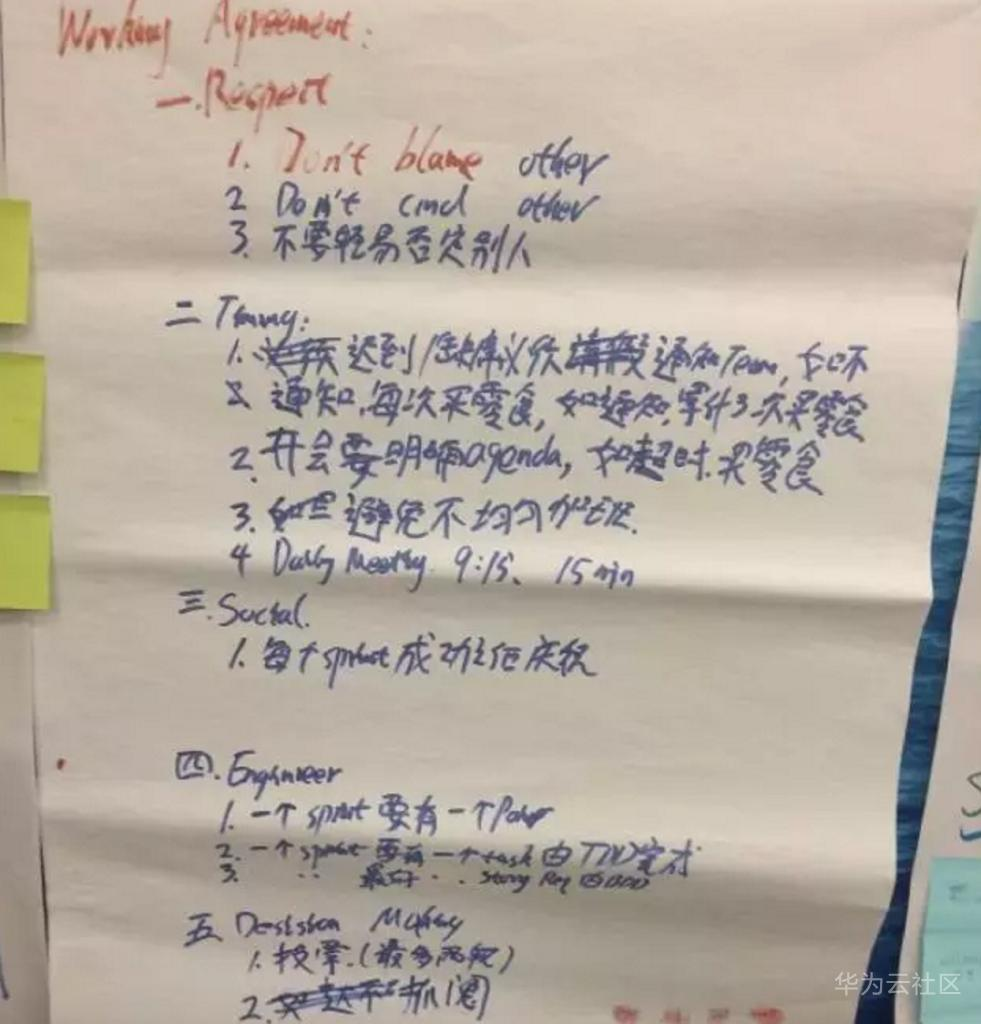 Working Agreement:
一.Respect
1. Don't blame other
2 Don't cmd other
3. 不要轻易否定别人
二 Timing:
1. 迟到/缺席议须通知Team, 如不
通知,每次买零食,如通知,累计3次买零食
2. 开会要明确agenda, 如超时.买零食
3. 避免不均匀加班.
4 Daily Meeting. 9:15、 15min
三.Social.
1. 每个sprint成功往后庆祝
四.Engineer
1. 一个sprint要有一个Pair
2. 一个sprint要有一个task由TDD完成
3. 〃 最好 〃 Story Req 由BDD
五 Decision Making
1. 投票.(最多两轮)
2. 抓阄
华为云社区